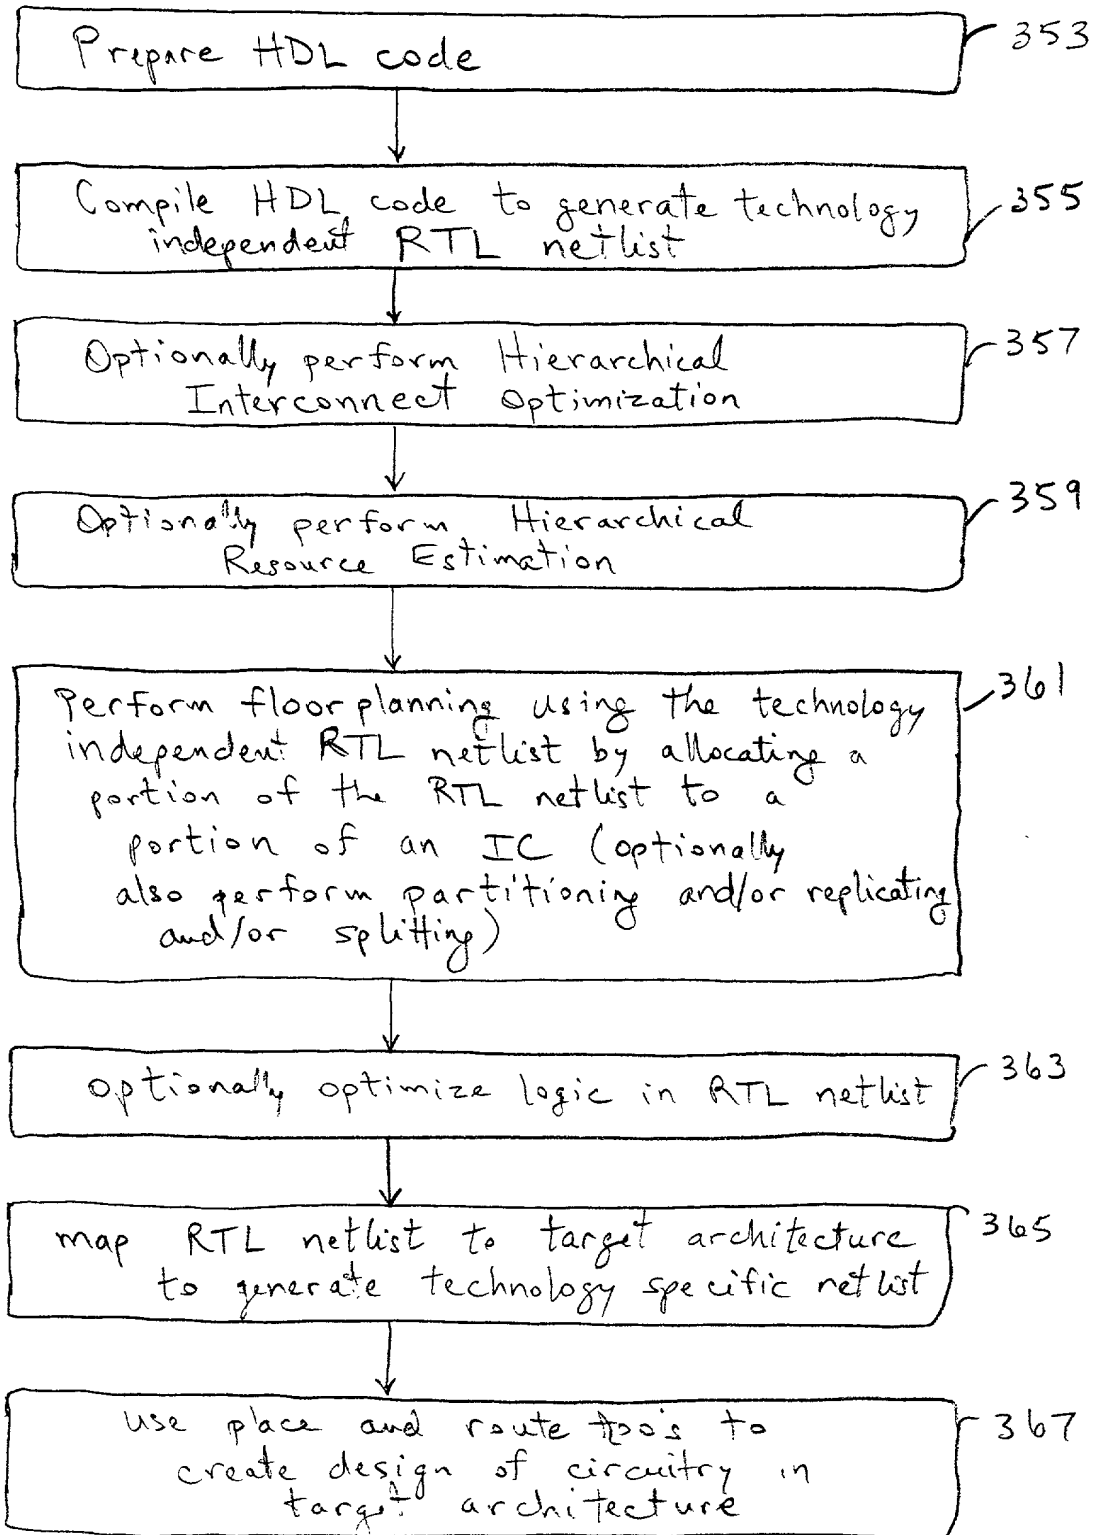 Prepare HDL code
353
Compile HDL code to generate technology
independent RTL netlist
355
Optionally perform Hierarchical
Interconnect Optimization
357
Optionally perform Hierarchical
Resource Estimation
359
Perform floor planning using the technology
independent RTL netlist by allocating a
portion of the RTL netlist to a
portion of an IC (optionally
also perform partitioning and/or replicating
and/or splitting)
361
optionally optimize logic in RTL netlist
363
map RTL netlist to target architecture
to generate technology specific netlist
365
use place and route tools to
create design of circuitry in
target architecture
367